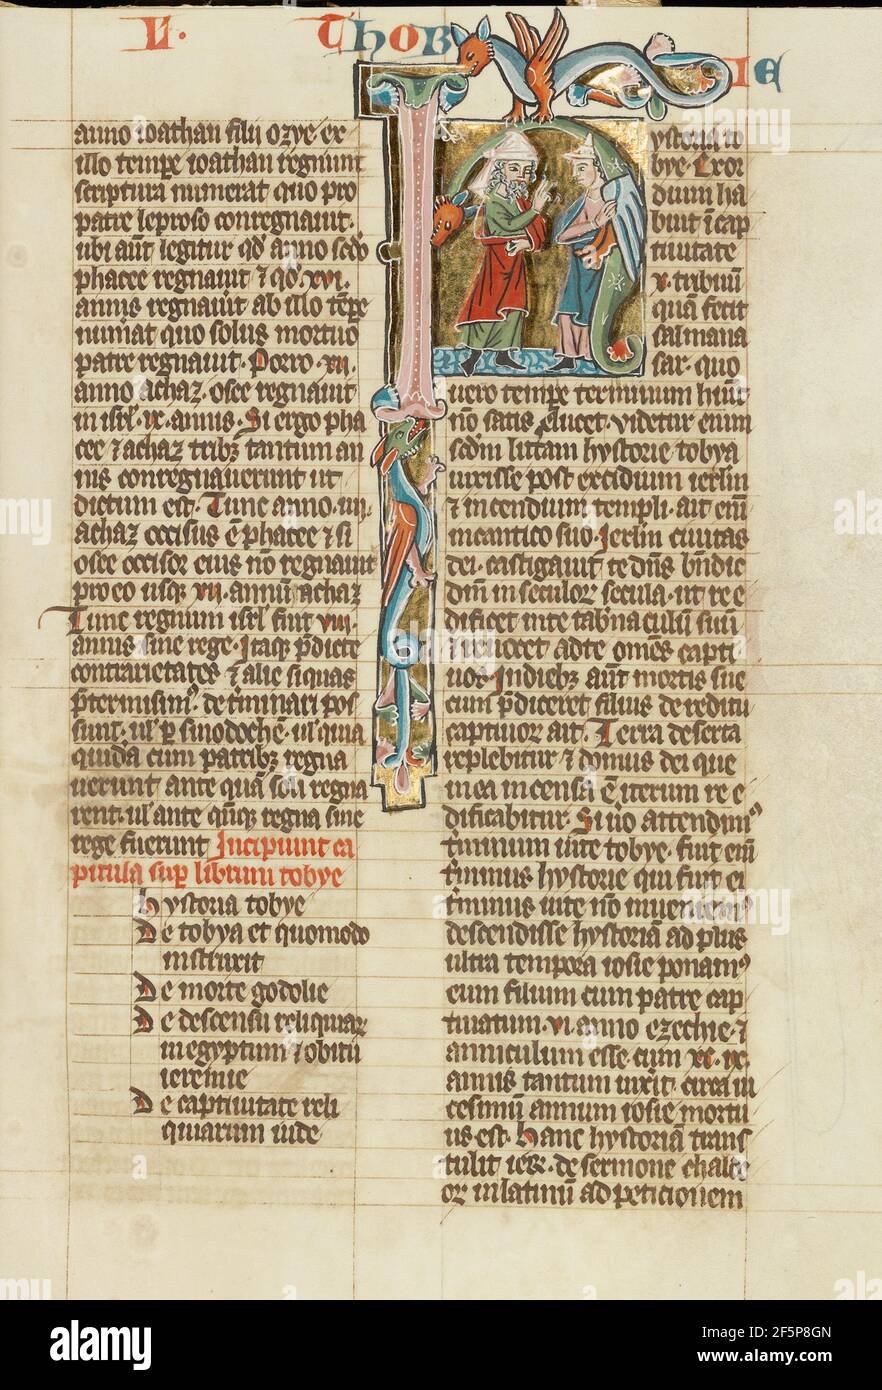 L. THOBIE
anno ioathan filii ozye ex
illo tempe ioathan regnum
scriptura numerat quo pro
patre leproso conregnauit.
ubi aut legitur qd anno scdo
phacee regnauit ⁊ qd xvi.
annis regnauit ab illo tempe
numat quo solus mortuo
patre regnauit. Porro xii.
anno achaz osee regnauit
in isrl ix annis. Si ergo pha
cee ⁊ achaz tribz tantum an
nis conregnauerunt ut
dictum est. Tunc anno iiii.
achaz occisus e phacee ⁊ si
osee occisor eius no regnauit
pro eo usqz vii annum achaz
Tunc regnum isrl fuit viii.
annis sine rege. Itaqz pdicte
contrarietates ⁊ alie siquas
ptermisimus determinari pos
sunt. ul p sinodochen. ul quia
quida cum patribz regna
uerunt ante qua soli regna
rent. ul ante qmqz regna sine
rege fuerunt Incipiunt ca
pitula sup librum tobye
Hystoria tobye
De tobya et quomodo
instruxit
De morte godolie
De descensu reliquiar
in egyptum ⁊ obitu
ieremie
De captiuitate reli
quiarum iude
Hystoria to
bye. Exor
dium ha
buit i cap
tiuitate
x tribuu
quam fecit
salmana
sar. quo
uero tempe terminum huiut
no satis elucet. Videtur enim
scdm littam hystorie tobya
uixisse post excidium ierlm
⁊ incendium templi. ait em
in cantico suo. Ierlm ciuitas
dei. castigauit te dns bndic
dm in seculor secula. ut ree
dificet in te tabnaculu suu
⁊ reuocet ad te omes capti
uos. In diebz aut mortis sue
cum pdiceret filius de reditu
captiuor ait. Terra deserta
replebitur ⁊ domus dei que
in ea incensa e iterum ree
dificabitur. Si uo attendimus
tminum uite tobye. fuit em
tminus hystorie qui fuit ei
tminus uite no inueniemus
descendisse hystoria ad plus
ultra tempora iosie ponamus
eum filium cum patre cap
tiuatum. vi anno ezechie. ⁊
anniculum esse cum xc ix.
annis tantum uixit. circa ui
cesimu annum iosie mortu
us est. Hanc hystoria trans
tulit iero. de sermone chalde
or in latinu ad peticionem
alamy
Image ID: 2F5P8GN
www.alamy.com